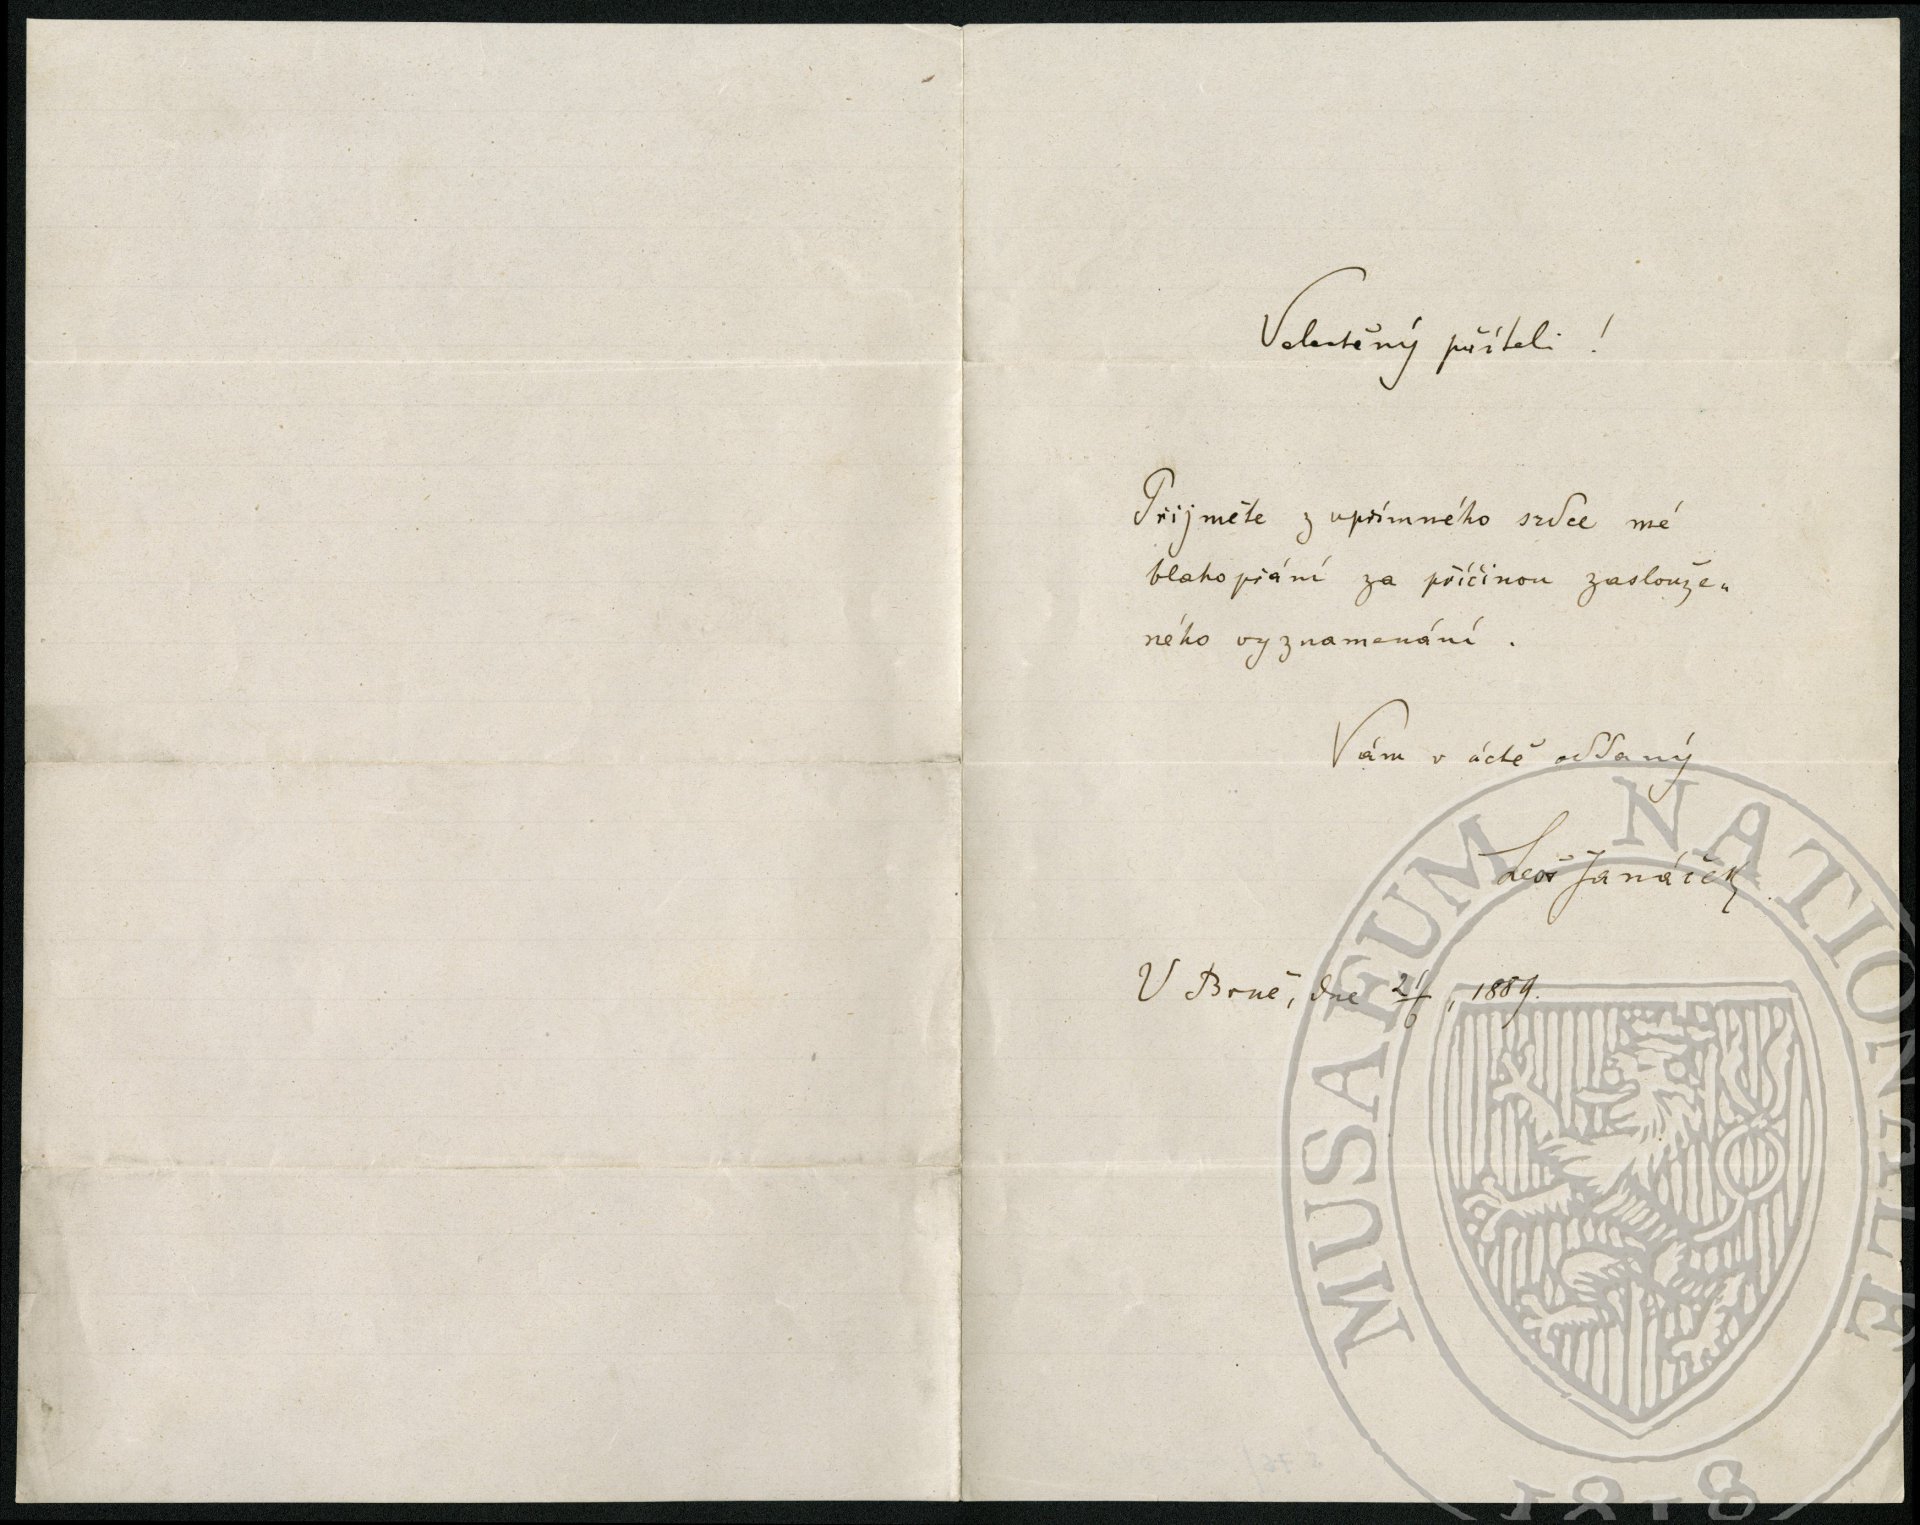 Velectěný příteli!
Přijměte z upřímného srdce mé
blahopřání za příčinou zaslouže„
ného vyznamenání.
Vám v úctě oddaný
Leoš Janáček
V Brně, dne 21/6, 1889.
MUSAEUM NATIONALE
1818